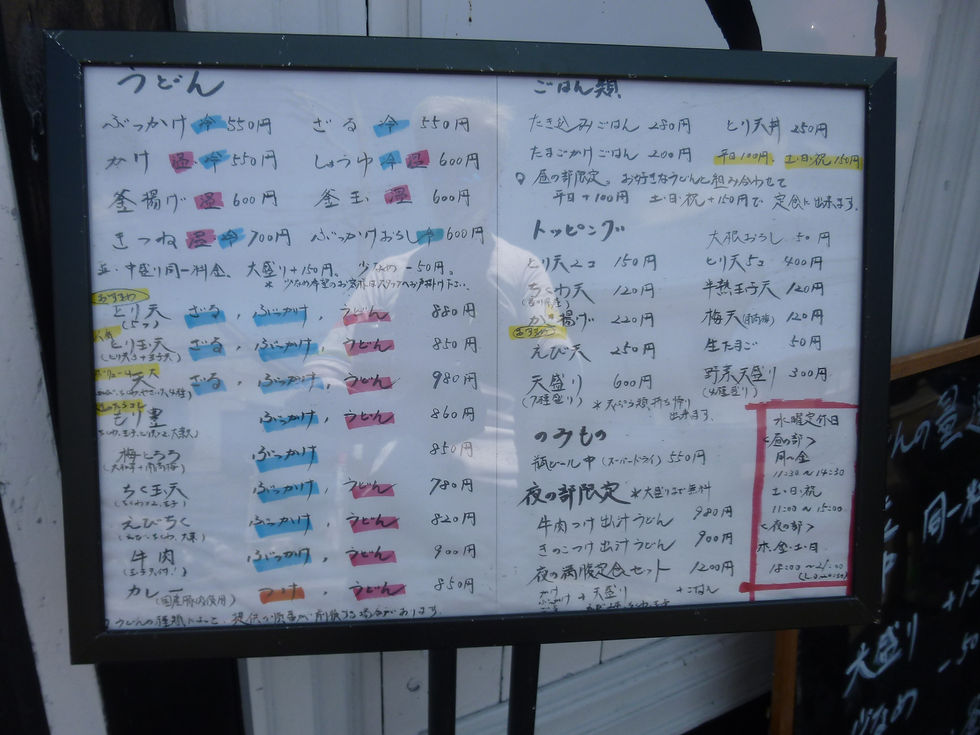 うどん
ぶっかけ 冷 550円 ざる 冷 550円
かけ 温・冷 550円 しょうゆ 冷 温 600円
釜揚げ 温 600円 釜玉 温 600円
きつね 温・冷 700円 ぶっかけおろし 冷 600円
並・中盛り同一料金、大盛り+150円、少なめ-50円。
おすすめ
とり天 ざる, ぶっかけ, うどん 880円
(5つ)
とり玉天 ざる, ぶっかけ, うどん 850円
天 ざる, ぶっかけ, うどん 980円
もり豊 ぶっかけ, うどん 860円
梅とろろ ぶっかけ 850円
ちく玉天 ぶっかけ, うどん 780円
えびちく ぶっかけ, うどん 820円
牛肉 ぶっかけ, うどん 900円
カレー つけ, うどん 850円
(国産豚肉使用)
うどんの種類によって、提供の順番が前後する場合があります。
ごはん類
たき込みごはん 280円 とり天丼 250円
たまごかけごはん 200円 平日100円、土・日・祝150円
昼の部限定。お好きなうどんと組み合わせて
平日+100円 土・日・祝+150円で定食に出来ます。
トッピング 大根おろし 50円
とり天2コ 150円 とり天5コ 400円
ちくわ天 120円 半熟玉子天 120円
かき揚げ 220円 梅天(南高梅) 120円
おすすめ
えび天 250円 生たまご 50円
天盛り 600円 野菜天盛り 300円
(7種盛り) (4種盛り)
*天ぷら類、持ち帰り
出来ます。
のみもの
瓶ビール中 (スーパードライ) 550円
夜の部限定 *大盛りまで無料
牛肉つけ出汁うどん 980円
きのこつけ出汁うどん 900円
夜の満腹定食セット 1200円
かけ
ぶっかけ + 天盛り +ごはん
水曜定休日
<昼の部>
月〜金
11:30〜14:30
土・日・祝
11:00〜15:00
<夜の部>
木・金・土・日
18:00〜21:00
大盛り
少なめ